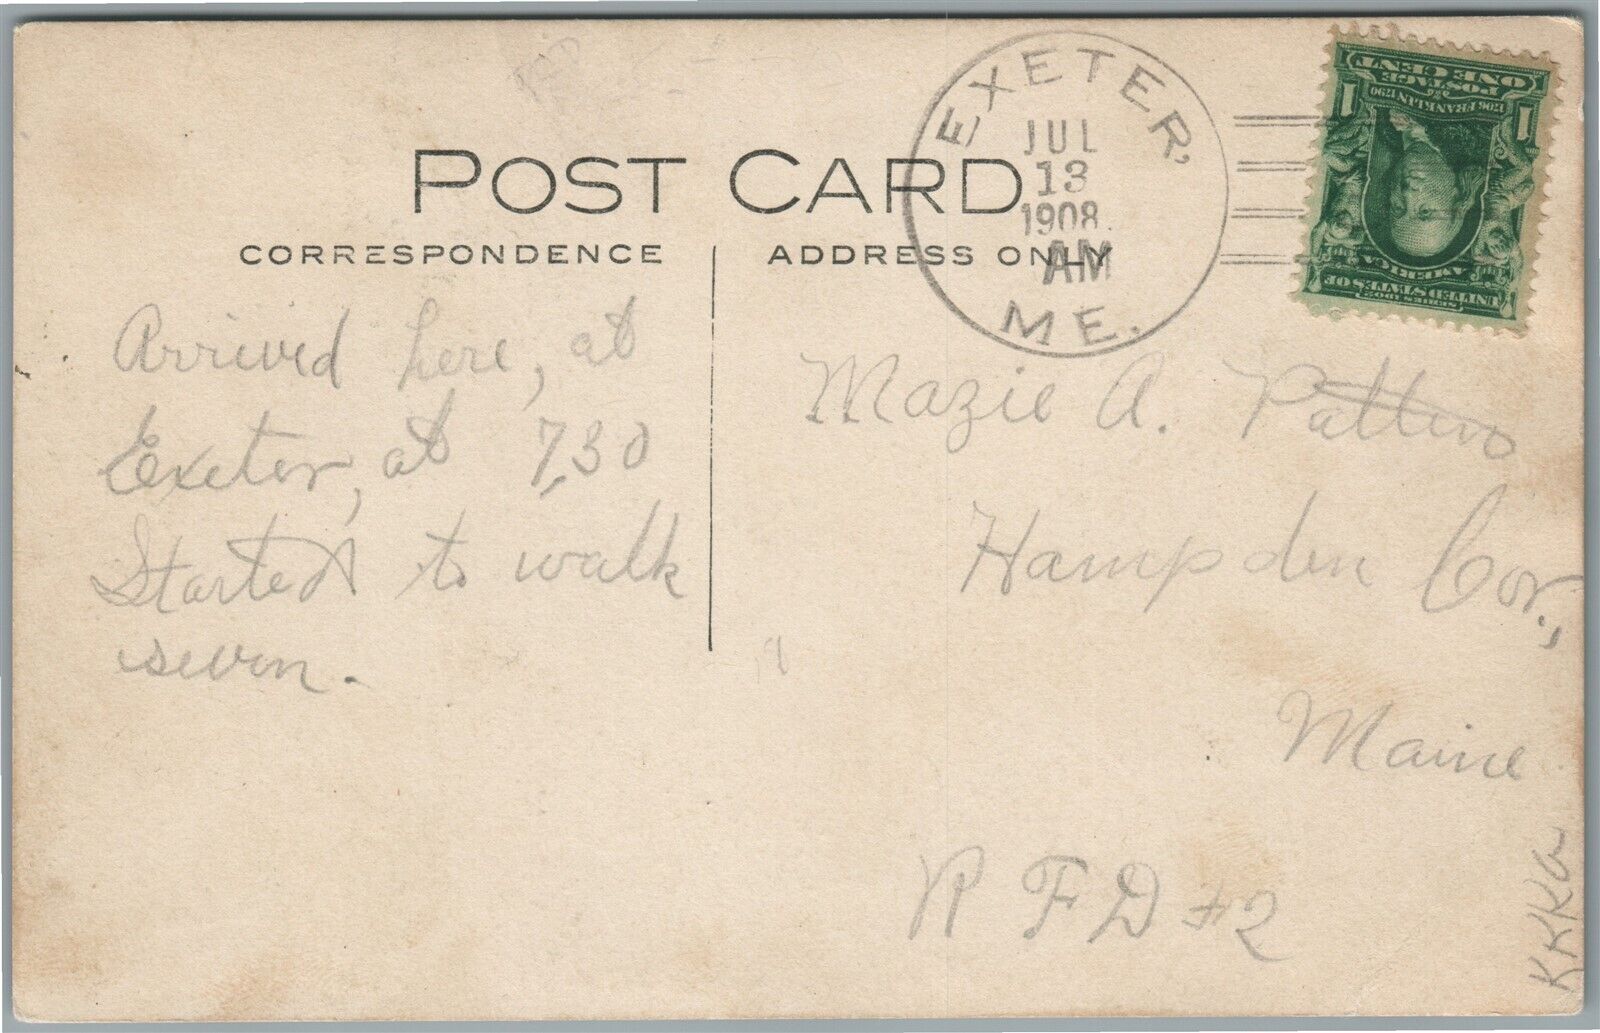 POST CARD
CORRESPONDENCE
ADDRESS ONLY
EXETER,
JUL
13
1908.
AM
ME.
POSTAGE
ONE CENT
1706 FRANKLIN 1790
1 1
SERIES 1902
UNITED STATES OF
AMERICA
Arrived here, at
Exeter, at 7,30
Started to walk
seven.
Mazie A. Patten
Hampden Cor.,
Maine
R F D #2